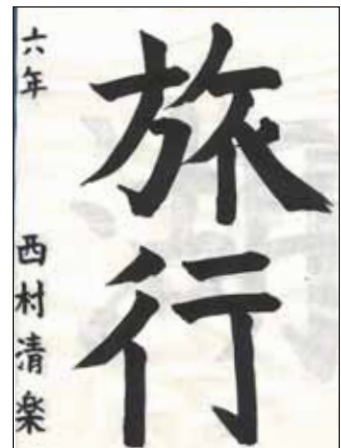 旅行
六年 西村清楽